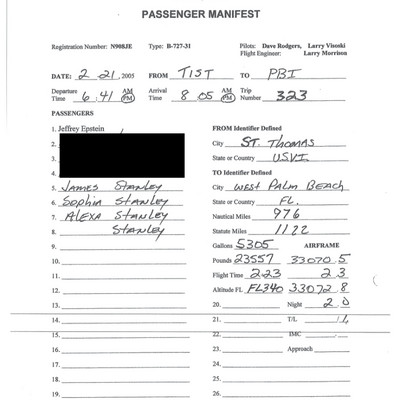 PASSENGER MANIFEST
Registration Number: N908JE Type: B-727-31 Pilots: Dave Rodgers, Larry Visoski
Flight Engineer: Larry Morrison
DATE: 2 21, 2005 FROM TIST TO PBI
Departure Time 6:41 AM PM Arrival Time 8 05 AM PM Trip Number 323
PASSENGERS
1. Jeffrey Epstein FROM Identifier Defined
2. City ST. THOMAS
3. State or Country USVI
4. TO Identifier Defined
5. JAMES STANLEY City WEST PALM BEACH
6. Sophia STANLEY State or Country FL.
7. ALEXA STANLEY Nautical Miles 976
8. STANLEY Statute Miles 1122
9. Gallons 5305 AIRFRAME
10. Pounds 23557 33070.5
11. Flight Time 2 23 2 3
12. Altitude FL340 33072 8
13. 20. Night 2.0
14. 21. T/L
15. 22. IMC
16. 23. Approach
17. 24.
18. 25.
19. 26.